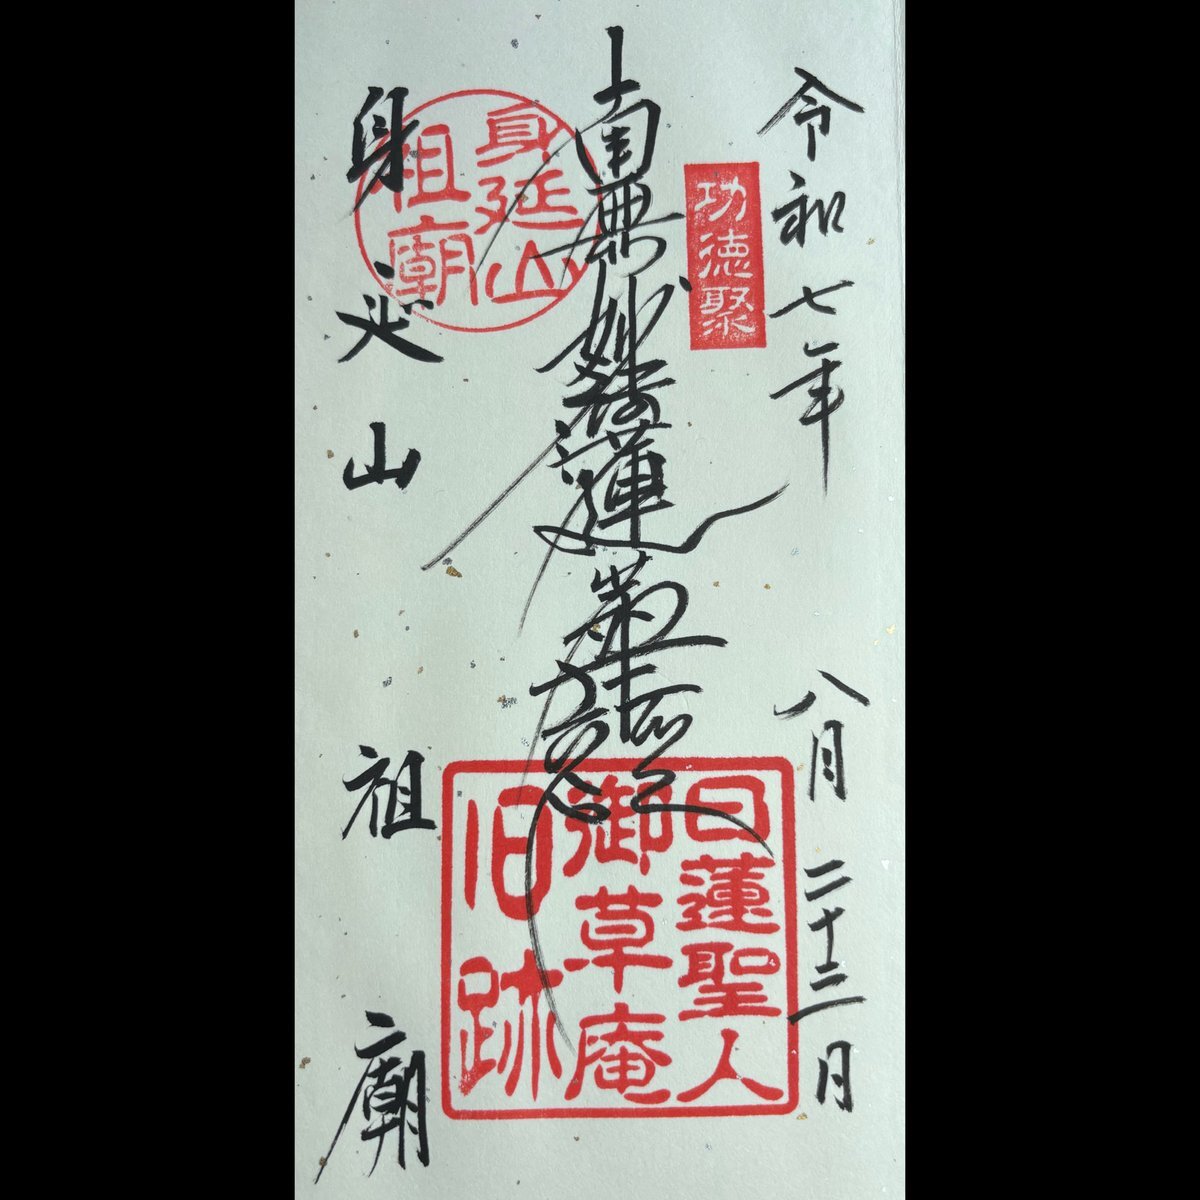 令和七年 八月二十三日
功徳聚
南無妙法蓮華經
日蓮聖人
御草庵
旧跡
身延山
祖廟
身延山 祖廟